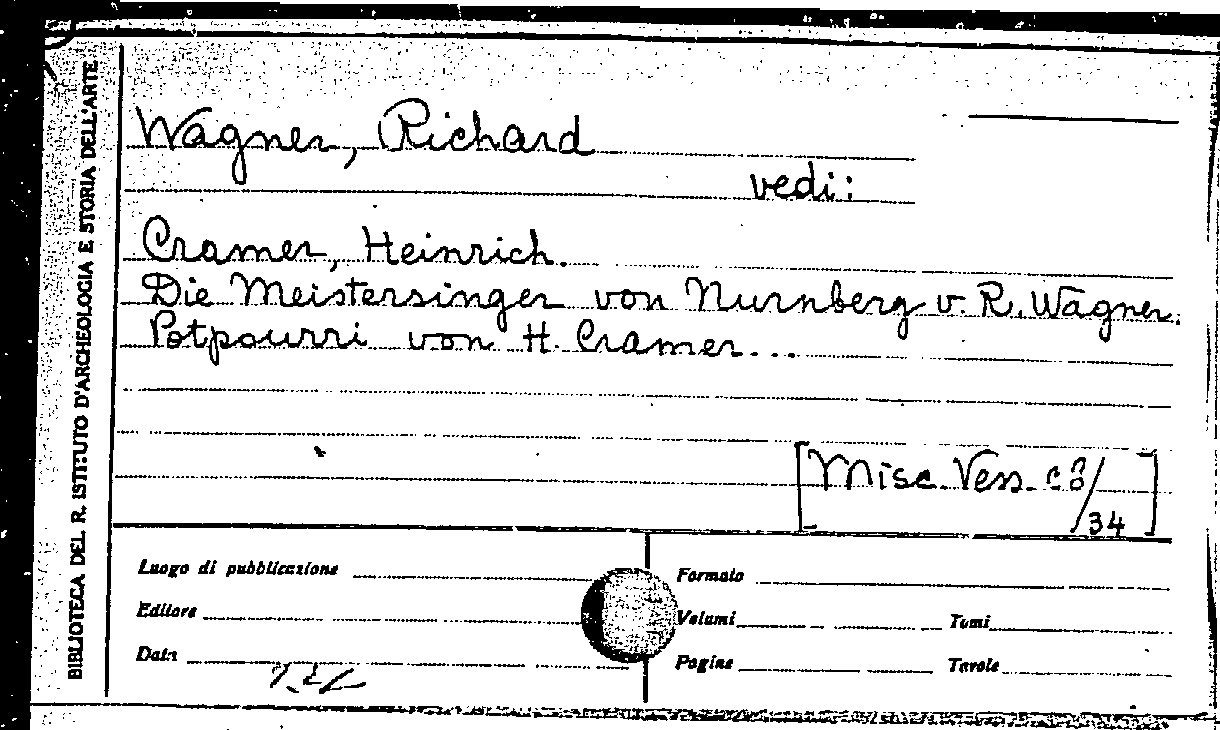 BIBLIOTECA DEL R. ISTITUTO D'ARCHEOLOGIA E STORIA DELL'ARTE
Wagner, Richard
vedi:
Cramer, Heinrich.
Die Meistersinger von Nurnberg v. R. Wagner.
Potpourri von H. Cramer...
[Misc. Vess. c8/
34]
Luogo di pubblicazione
Formato
Editore
Volumi
Tomi
Data
Pagine
Tavole